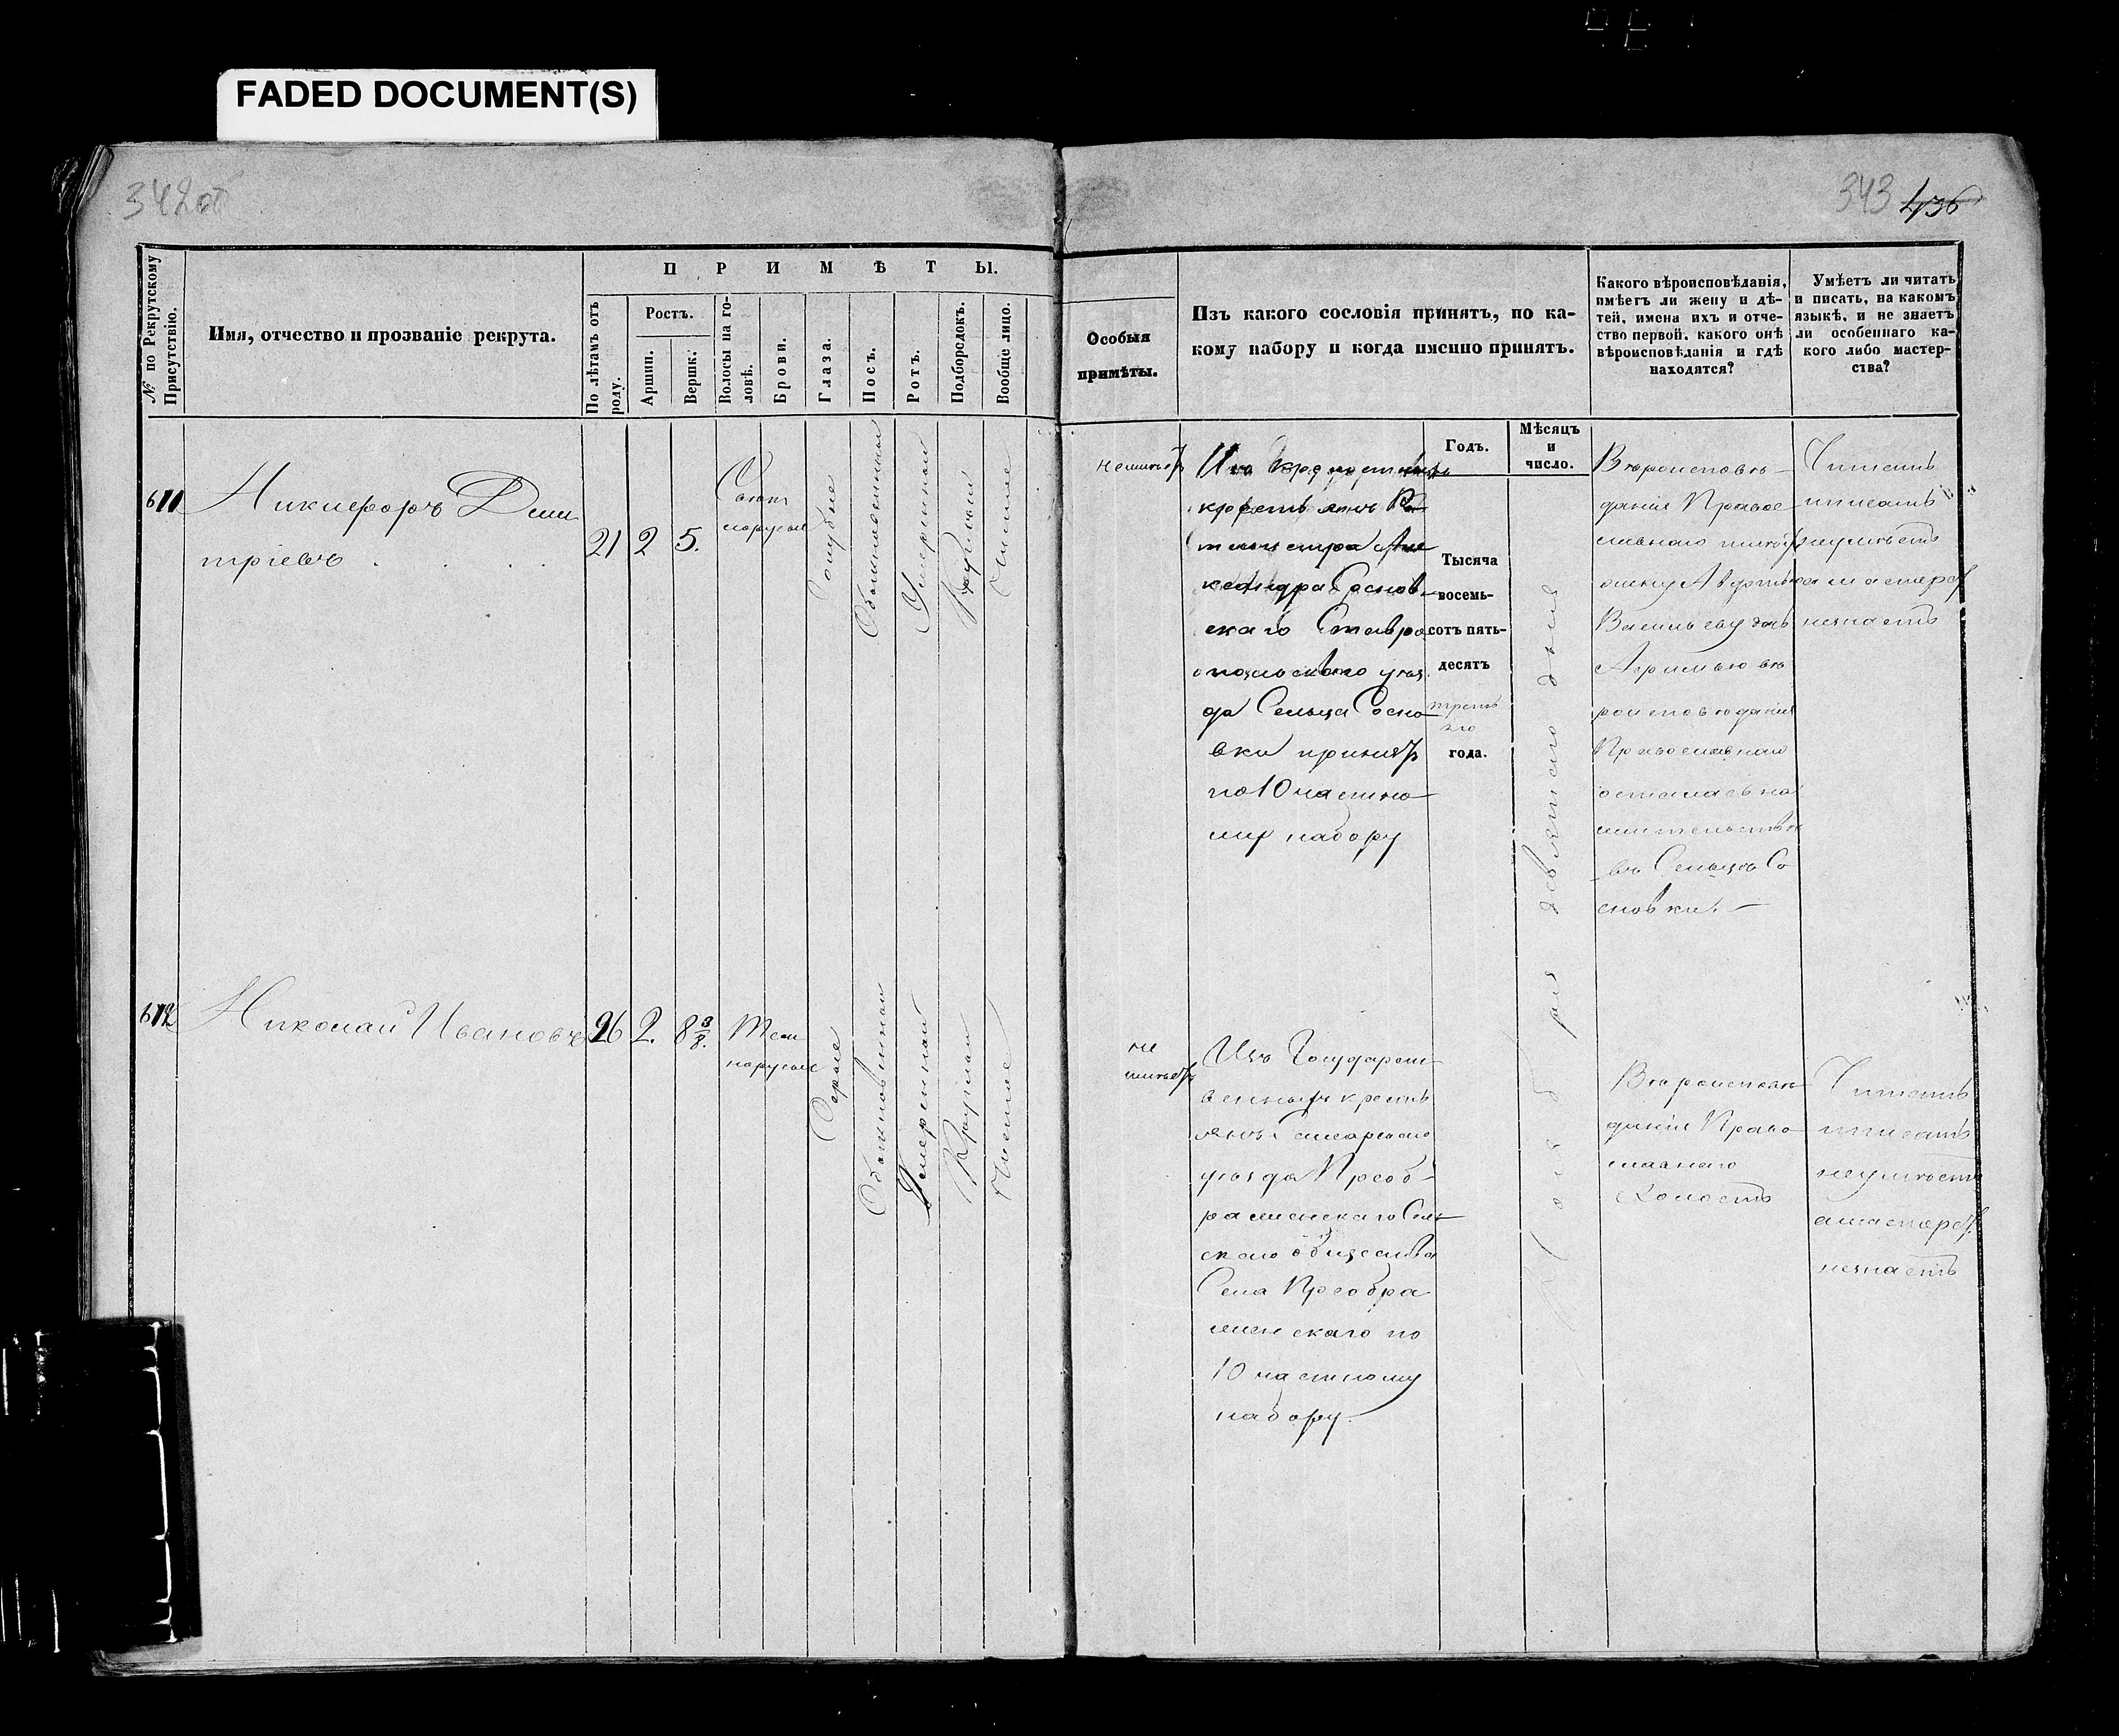 FADED DOCUMENT(S)
342об
343 436
№ по Рекрутскому Присутствію.
Имя, отчество и прозваніе рекрута.
ПРИМѢТЫ.
По лѣтамъ отъ роду.
Ростъ.
Аршин.
Вершк.
Волосы на головѣ.
Брови.
Глаза.
Носъ.
Ротъ.
Подбородокъ.
Вообще лицо.
Особыя
примѣты.
Изъ какого сословія принятъ, по ка-
кому набору и когда именно принятъ.
Какого вѣроисповѣданія,
имѣетъ ли жену и дѣ-
тей, имена ихъ и отче-
ство первой, какого онѣ
вѣроисповѣданія и гдѣ
находятся?
Умѣетъ ли читать
и писать, на какомъ
языкѣ, и не знаетъ
ли особеннаго ка-
кого либо мастер-
ства?
Годъ.
Мѣсяцъ
и
число.
611
Никифоръ Дми
тріевъ
21 2 5.
Свѣтл
норусые
Голубые
Обыкновенный
Умѣренный
Круглый
Чистое
не имѣетъ
Изъ крѣпостныхъ
крестьянъ
Алек
сандра Соснов-
скаго Ставро
польскаго уѣз
да Сельца Сосно
вки принятъ
по 10 частно
му набору
Тысяча
восемь-
сотъ пять-
десятъ
треть
яго
года.
Ноября девятаго дня
Вѣроисповѣ-
данія Правос
лавнаго имѣетъ
жену
Васильеву дочь
вѣ
роисповѣданія
Православнаго
осталась на
жительствѣ
въ Сельцѣ Со
сновки.
Читать
и писать
неумѣетъ
а мастерст
незнаетъ
612
Николай Ивановъ
26 2. 8 3/8.
Тем
норусые
Сѣрые
Обыкновенный
Умѣренный
Круглый
Чистое
не
имѣетъ
Изъ Государст
венныхъ кресть
янъ Самарскаго
уѣзда Преоб-
раженскаго Сель
скаго общества
Села Преобра
женскаго по
10 частному
набору
Вѣроисповѣ
данія Право
славнаго
Холостъ
Читать
и писать
неумѣетъ
а мастерст.
незнаетъ